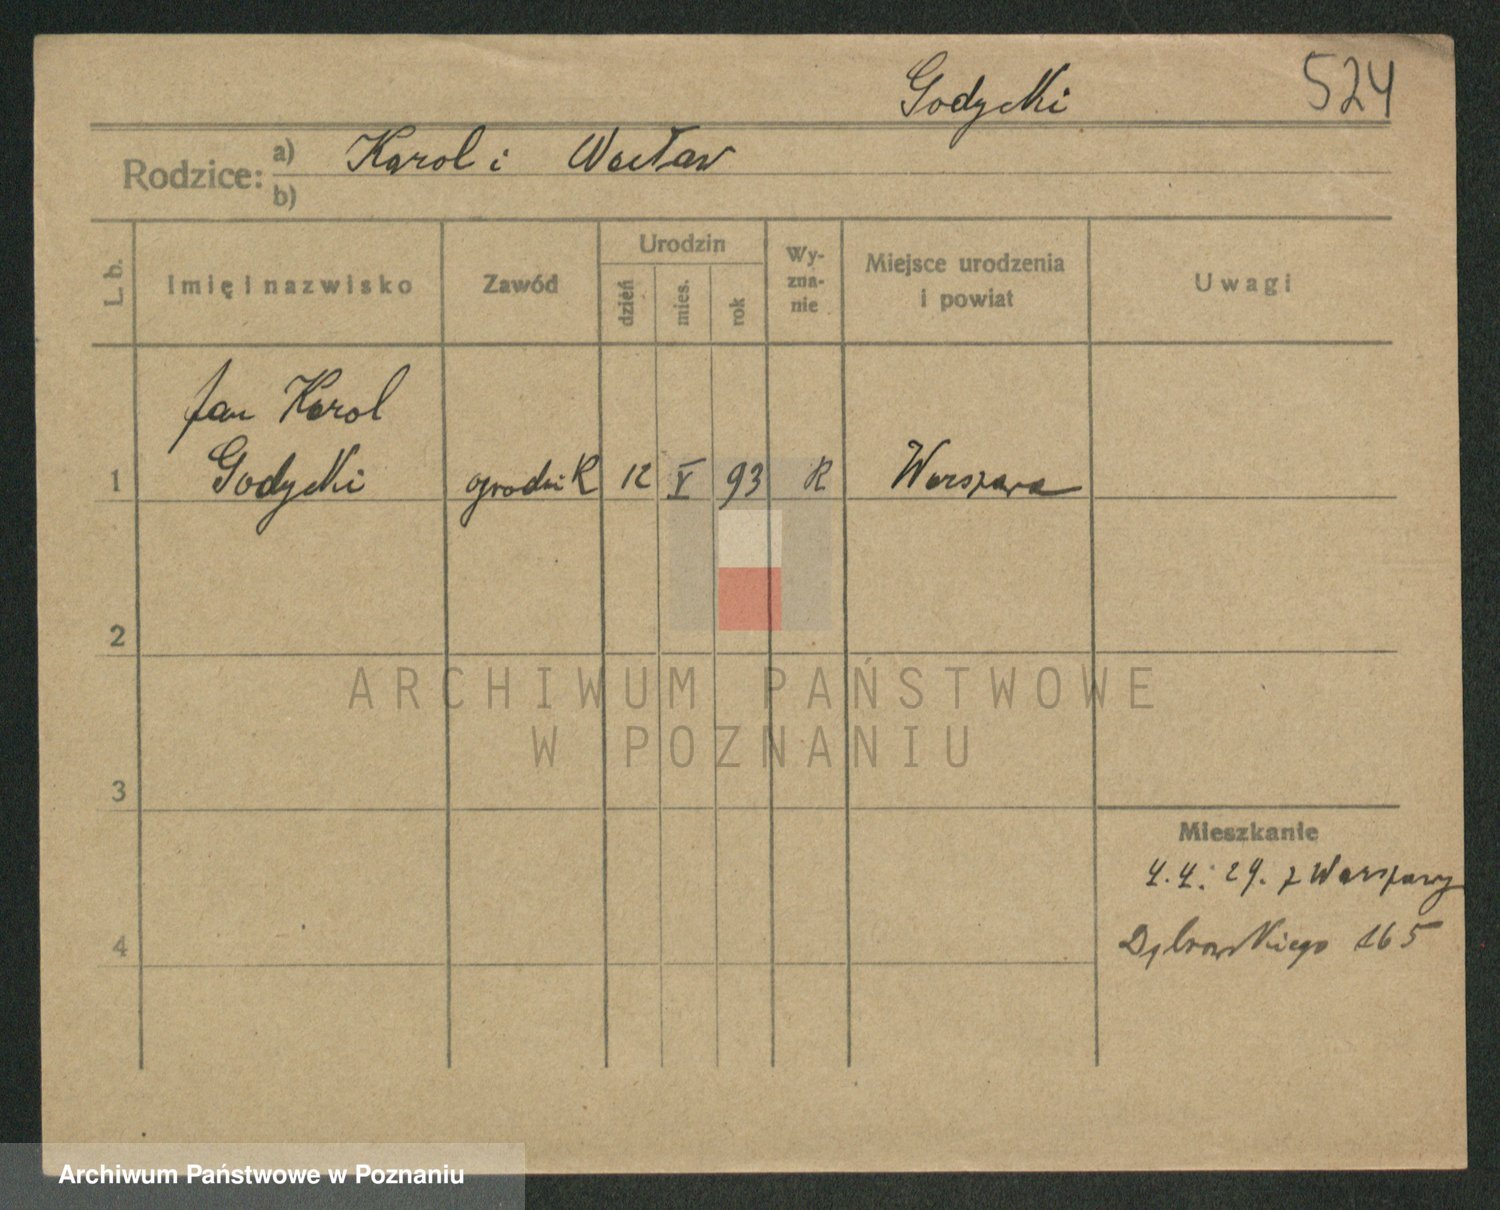 Godycki 524
Rodzice: a) Karol i Wacław
b)
L. b.
Imię i nazwisko
Zawód
Urodzin
dzień
mies.
rok
Wy-
zna-
nie
Miejsce urodzenia
i powiat
Uwagi
Jan Karol
1 Godycki ogrodnik 12 V 93 R Warszawa
2
ARCHIWUM PAŃSTWOWE
W POZNANIU
3
Mieszkanie
4.4. 29. z Warszawy
4 Dąbrowskiego 165
Archiwum Państwowe w Poznaniu